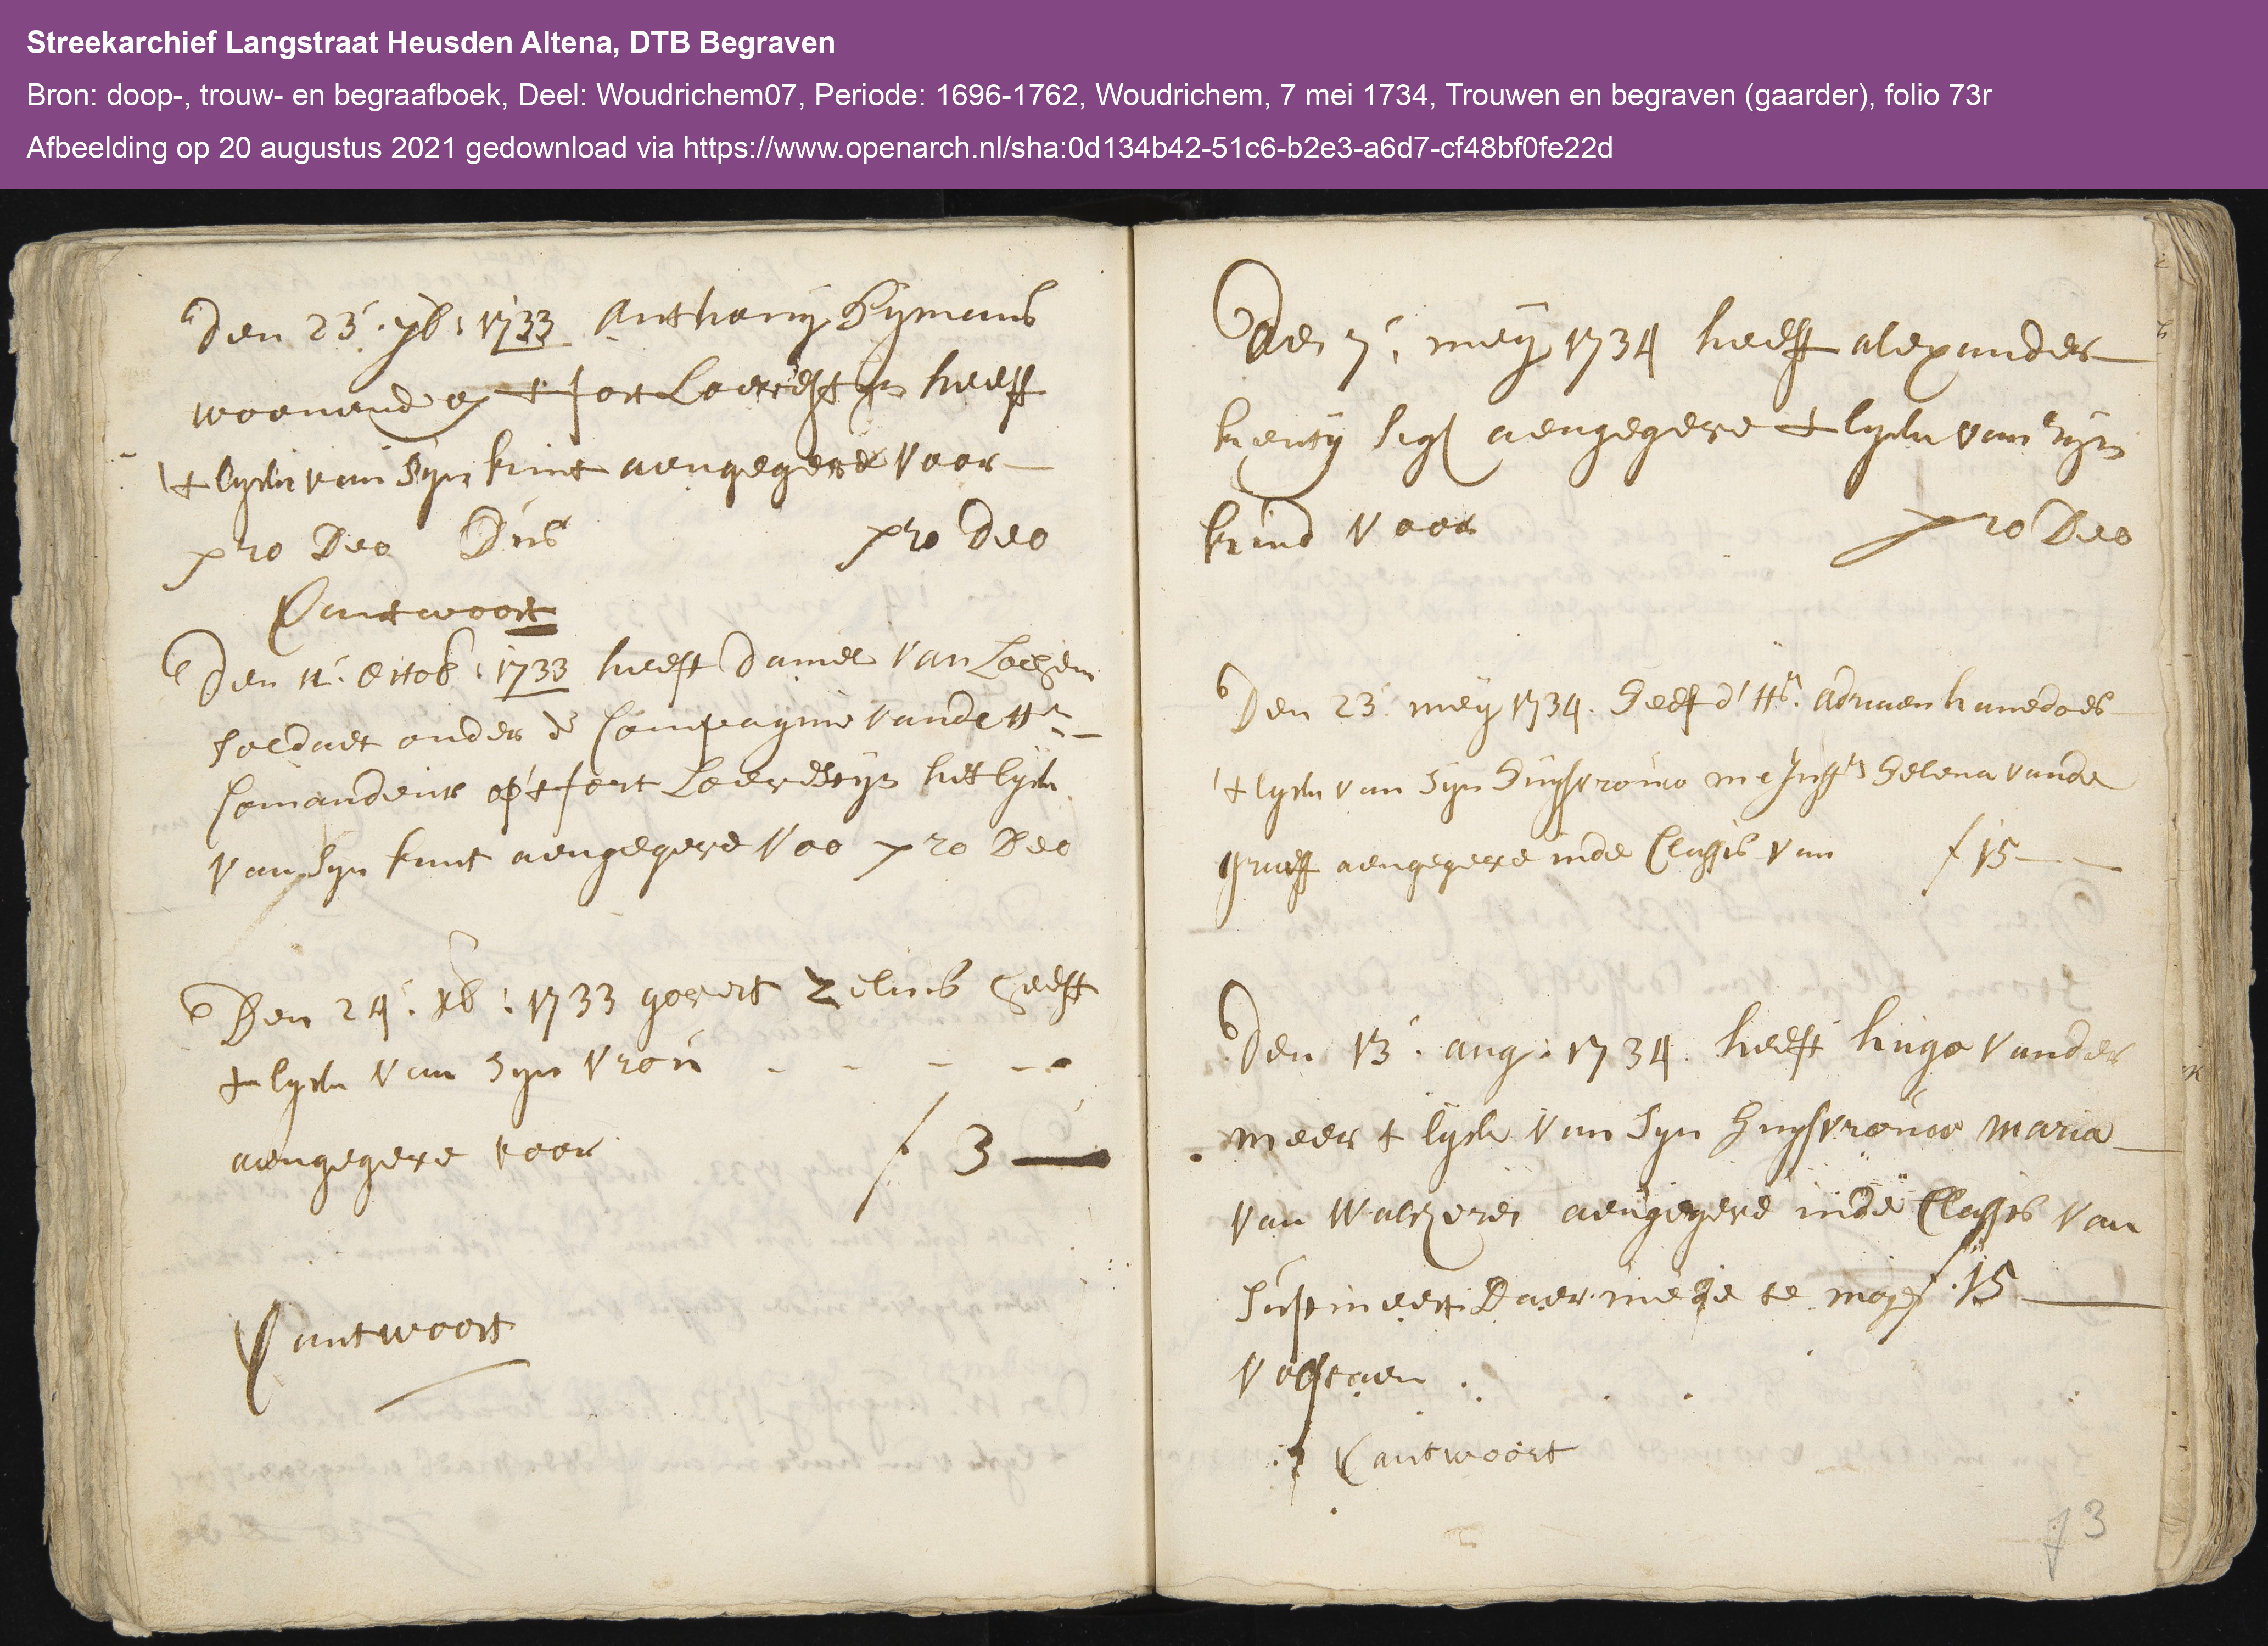 Streekarchief Langstraat Heusden Altena, DTB Begraven
Bron: doop-, trouw- en begraafboek, Deel: Woudrichem07, Periode: 1696-1762, Woudrichem, 7 mei 1734, Trouwen en begraven (gaarder), folio 73r
Afbeelding op 20 augustus 2021 gedownload via https://www.openarch.nl/sha:0d134b42-51c6-b2e3-a6d7-cf48bf0fe22d
den 23. 7b: 1733 Anthonij Hijmans
woonend op t fort Loevesteijn heeft
't lijck van Sijn kint aengegeve voor
pro Deo Dus pro Deo
Cantwoort
den 11. octob: 1733 heeft daniel van Lochem
soldaet onder de Compagnie vande Hr
Comandeur op 't fort Loevesteijn het lijck
van Sijn kint aengegeve voo pro Deo
Den 24. xb: 1733 govert Zelius heeft
t lijck van Sijn vrou
aengegeve voor f 3
Cantwoort
De 7. meij 1734 heeft alexander
aengegeve t lijck van Sijn
kind voor pro Deo
Den 23. meij 1734. Heeft d' Hr. Adriaen hanedoes
't lijck van Sijn Huijsvrouw me Juffr Helena vande
graeff aengegeve inde Classis van f 15
Den 13. aug. 1734. heeft hugo vander
meer t lijck van Sijn Huijsvrouw maria
van aengegeve inde Classis van
Sustineert Daer mede te moge f 15
volstaen.
Cantwoort
73